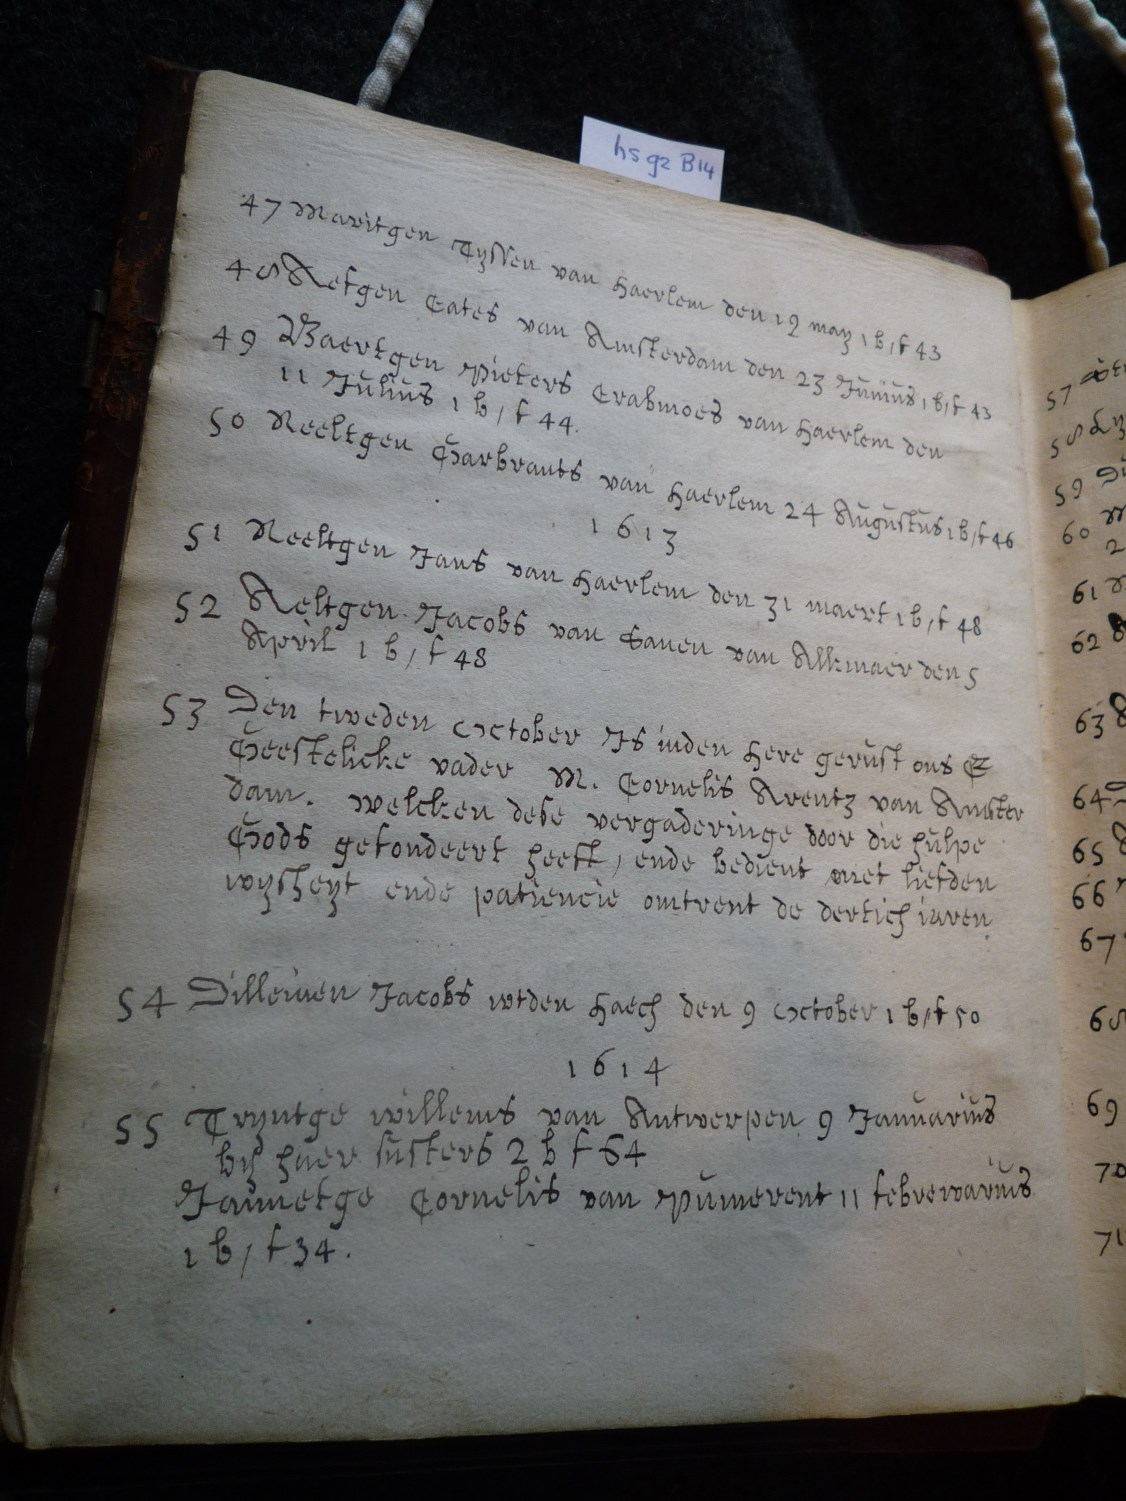 hs gz B14
47 Maritgen Tyssen van Haerlem den 12 may 1 b, f 43
48 Aefgen Cates van Amsterdam den 23 Junius 1 b, f 43
49 Baertgen Pieters Crabmoes van Haerlem den
11 Julius 1 b, f 44.
50 Neeltgen Garbrants van Haerlem 24 Augustus 1 b, f 46
1613
51 Neeltgen Jans van Haerlem den 31 maert 1 b, f 48
52 Aeltgen Jacobs van Sanen van Alkmaer den 5
April 1 b, f 48
53 Den tweden October Is inden Here gerust ons E
Geestelicke vader M. Cornelis Arentz van Amster
dam. welcken dese vergaderinge door die hulpe
Gods gefondeert heeft, ende bedient met liefden
wysheyt ende patiencie omtrent de dertich iaren.
54 Dillewen Jacobs wtden Haech den 9 October 1 b, f 50
1614
55 Tryntge willems van Antwerpen 9 Januarius
bij haer susters 2 b f 64
Jannetge Cornelis van Pumerent 11 februwarius
1 b, f 34.
57
58
59
60
2
61
62
63
64
65
66
67
68
69
70
71